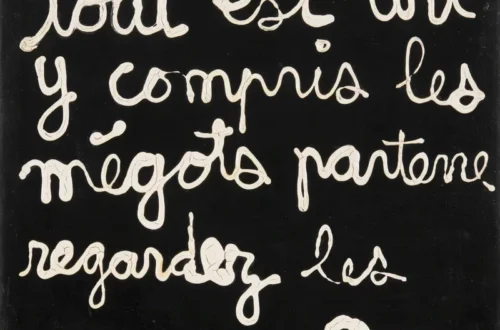 tout est art
y compris les
mégots parterre
regardez les